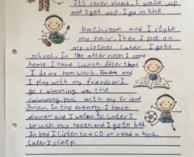 It's seven o'clock. I wake up
and I get up. I go in the
bathroom and I style
my hair. Then I put on
my clothes. Later I go to
school. In the afternoon I come
home. I have lunch. After that
I do my homework. Then
I play with my friends. I
go swimming in the
swimming pool with my friend
In the evening I have
dinner and I
my teeth and I go to bed.
In bed I listen to CD or read a book.
Later I sleep